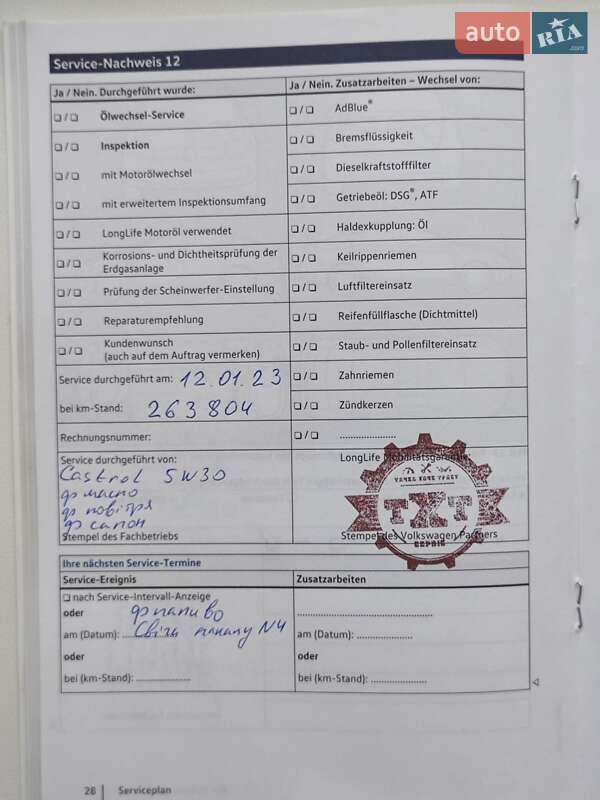 auto RIA .com
Service-Nachweis 12
Ja / Nein. Durchgeführt wurde:
❏ / ❏ Ölwechsel-Service
❏ / ❏ Inspektion
❏ / ❏ mit Motorölwechsel
❏ / ❏ mit erweitertem Inspektionsumfang
❏ / ❏ LongLife Motoröl verwendet
❏ / ❏ Korrosions- und Dichtheitsprüfung der
Erdgasanlage
❏ / ❏ Prüfung der Scheinwerfer-Einstellung
❏ / ❏ Reparaturempfehlung
❏ / ❏ Kundenwunsch
(auch auf dem Auftrag vermerken)
Service durchgeführt am: 12.01.23
bei km-Stand: 263804
Rechnungsnummer:
Service durchgeführt von:
Castrol 5W30
ф масло
ф повітря
ф салон
Stempel des Fachbetriebs
Ja / Nein. Zusatzarbeiten – Wechsel von:
❏ / ❏ AdBlue®
❏ / ❏ Bremsflüssigkeit
❏ / ❏ Dieselkraftstofffilter
❏ / ❏ Getriebeöl: DSG®, ATF
❏ / ❏ Haldexkupplung: Öl
❏ / ❏ Keilrippenriemen
❏ / ❏ Luftfiltereinsatz
❏ / ❏ Reifenfüllflasche (Dichtmittel)
❏ / ❏ Staub- und Pollenfiltereinsatz
❏ / ❏ Zahnriemen
❏ / ❏ Zündkerzen
❏ / ❏ ......................
LongLife Mobilitätsgarantie:
TXT
СЕРВІС
Stempel des Volkswagen Partners
Ihre nächsten Service-Termine
Service-Ereignis
❏ nach Service-Intervall-Anzeige
oder ф паливо
am (Datum): .... Свічі N4
oder
bei (km-Stand): .....................
Zusatzarbeiten
.....................................................
am (Datum): ......................
oder
bei (km-Stand): ......................
28 Serviceplan